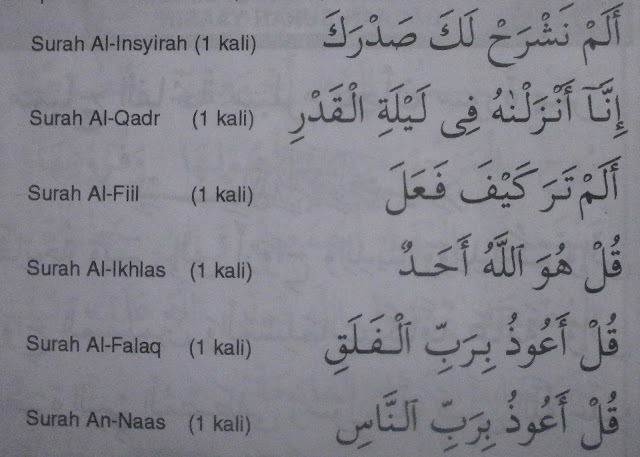 Surah Al-Insyirah (1 kali) أَلَمْ نَشْرَحْ لَكَ صَدْرَكَ
Surah Al-Qadr (1 kali) إِنَّآ أَنْزَلْنٰهُ فِى لَيْلَةِ الْقَدْرِ
Surah Al-Fiil (1 kali) أَلَمْ تَرَ كَيْفَ فَعَلَ
Surah Al-Ikhlas (1 kali) قُلْ هُوَ ٱللَّهُ أَحَـدٌ
Surah Al-Falaq (1 kali) قُلْ أَعُوذُ بِرَبِّ ٱلْـفَـلَقِ
Surah An-Naas (1 kali) قُلْ أَعُوذُ بِرَبِّ ٱلنَّاسِ